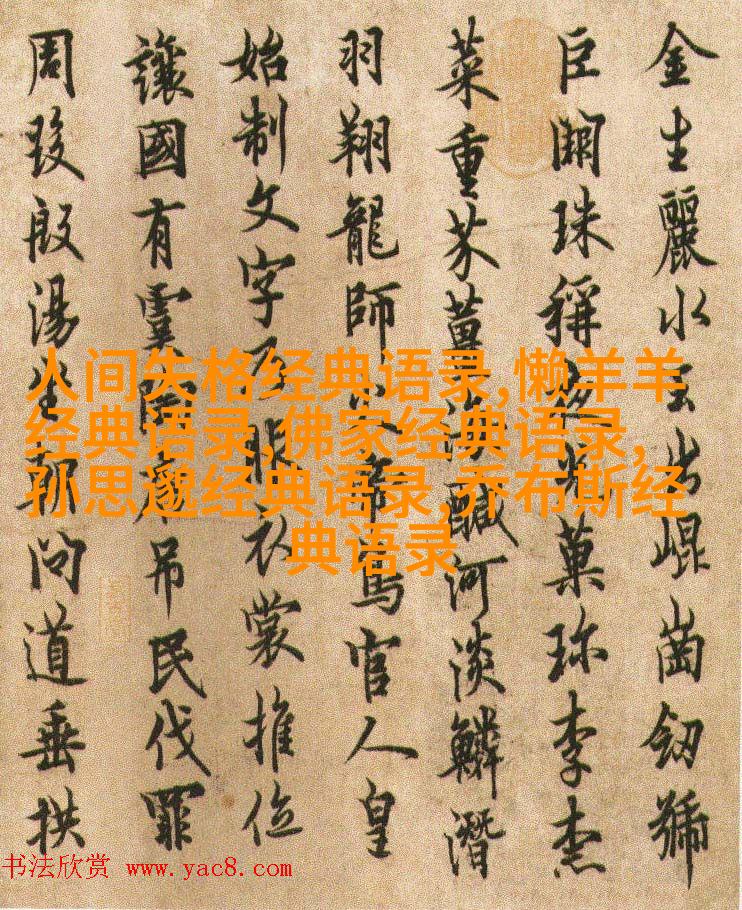 金生麗水玉出崐崗劒號
巨闕珠稱夜光菓珎李柰
菜重芥薑海醎河淡鱗潛
羽翔龍師帝鳥官人皇
始制文字乃服衣裳推位
讓國有虞陶吊民伐罪
周發殷湯坐朝問道垂拱
人间失格经典语录,懒羊羊
经典语录,佛家经典语录,
孙思邈经典语录,乔布斯经
典语录
书法欣赏 www.yac8.com